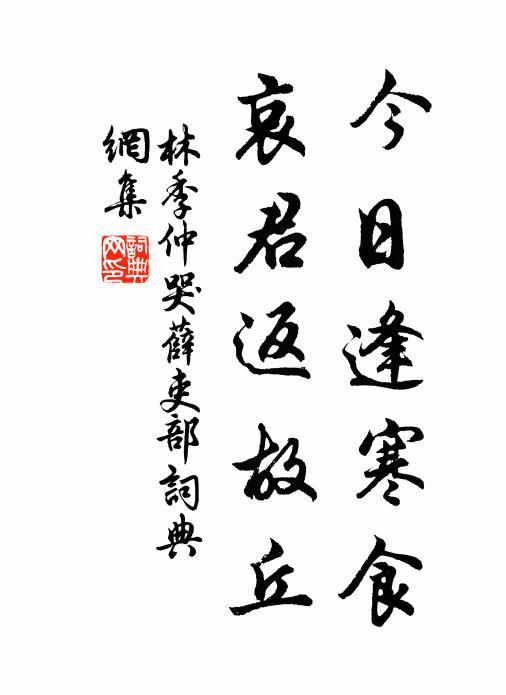 今日逢寒食
哀君返故丘
林季仲哭薛吏部詞典
網集
詞典网印